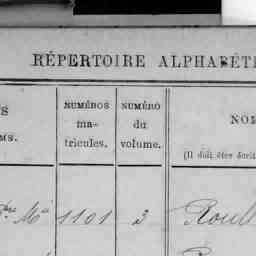 RÉPERTOIRE ALPHABÉT
S
MS.
NUMÉROS
ma-
tricules.
NUMÉRO
du
volume.
NOM
(Il doit être écrit
Mie 1101 3 Roul